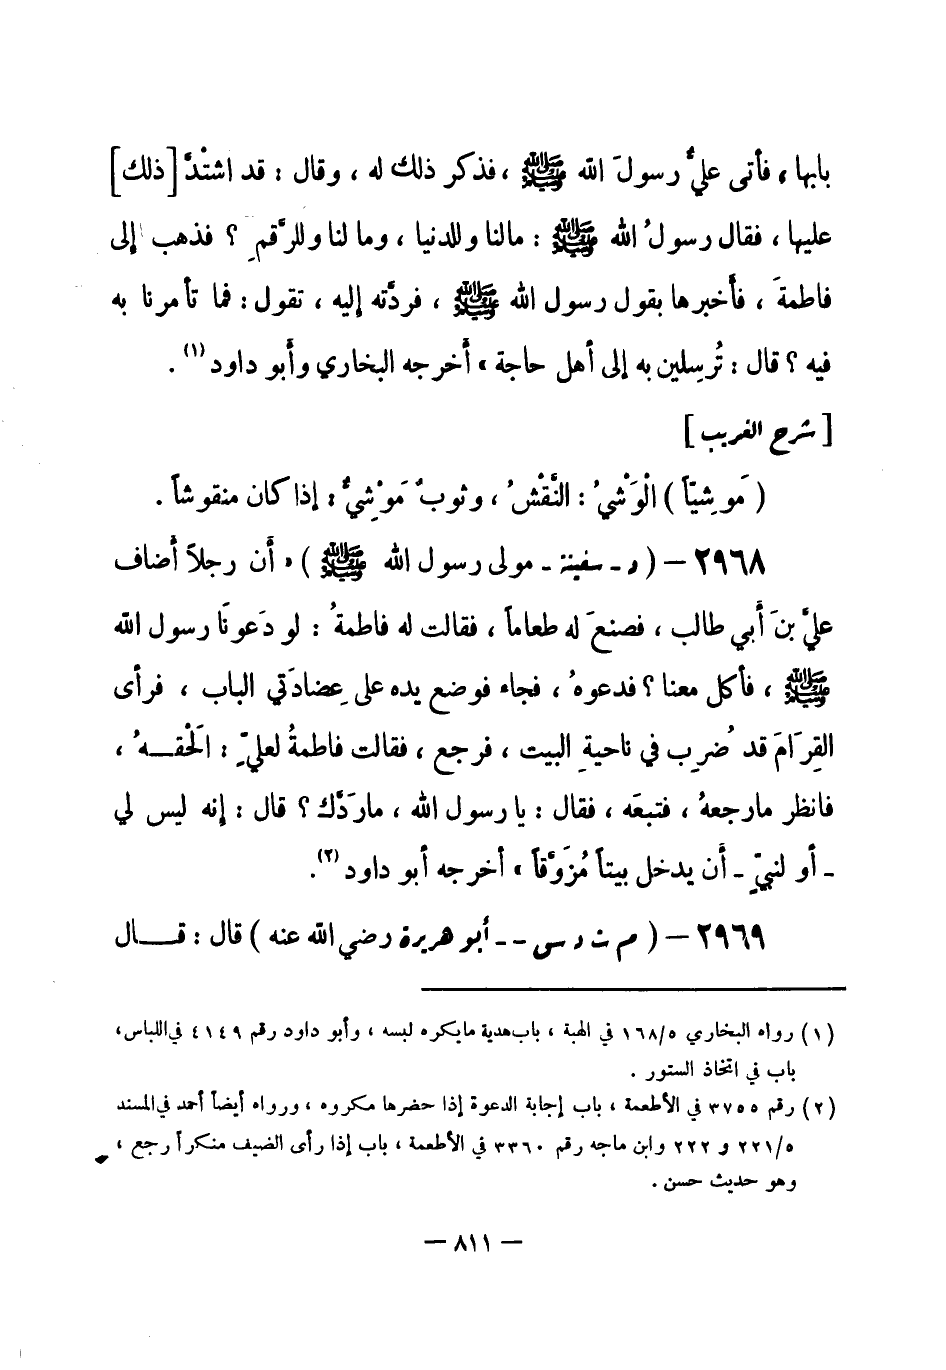 بابها، فأتى عليٌّ رسولَ الله ﷺ، فذكر ذلك له، وقال: قد اشتْدَّ [ذلك]
عليها، فقال رسولُ الله ﷺ: مالنا وللدنيا، وما لنا وللرَّقمِ؟ فذهب إلى
فاطمةَ، فأخبرها بقول رسول الله ﷺ، فردَّته إليه، تقول: فما تأمرنا به
فيه؟ قال: تُرسِلين به إلى أهل حاجة» أخرجه البخاري وأبو داود (١).
[شرح الغريب]
(مَوشِيّاً) الْوَشْيُ: النَّقْشُ، وثوبٌ مَوْشِيٌّ: إذا كان منقوشاً.
٢٩٦٨ – (د - سفينة - مولى رسول الله ﷺ) «أن رجلاً أضاف
عليَّ بنَ أبي طالب، فصنعَ له طعاماً، فقالت له فاطمةُ: لو دَعونَا رسول الله
ﷺ، فأكل معنا؟ فدعوهُ، فجاء فوضع يده على عِضادَتي الباب، فرأى
القِرَامَ قد ضُرِب في ناحيةِ البيت، فرجع، فقالت فاطمةُ لعليّ: الَحْقـــهُ،
فانظر مارجعهُ، فتبعَه، فقال: يا رسول الله، ماردَّك؟ قال: إنه ليس لي
- أو لنبيّ - أن يدخل بيتاً مُزَوَّقاً» أخرجه أبو داود (٢).
٢٩٦٩ – (م ت د س -- أبو هريرة رضي الله عنه) قال: قـــال
(١) رواه البخاري ٥/١٦٨ في الهبة، باب هدية مايكره لبسه، وأبو داود رقم ٤١٤٩ في اللباس،
باب في اتخاذ الستور.
(٢) رقم ٣٧٥٥ في الأطعمة، باب إجابة الدعوة إذا حضرها مكروه، ورواه أيضاً أحمد في المسند
٥/٢٢١ و ٢٢٢ وابن ماجه رقم ٣٣٦٠ في الأطعمة، باب إذا رأى الضيف منكراً رجع،
وهو حديث حسن.
– ٨١١ –